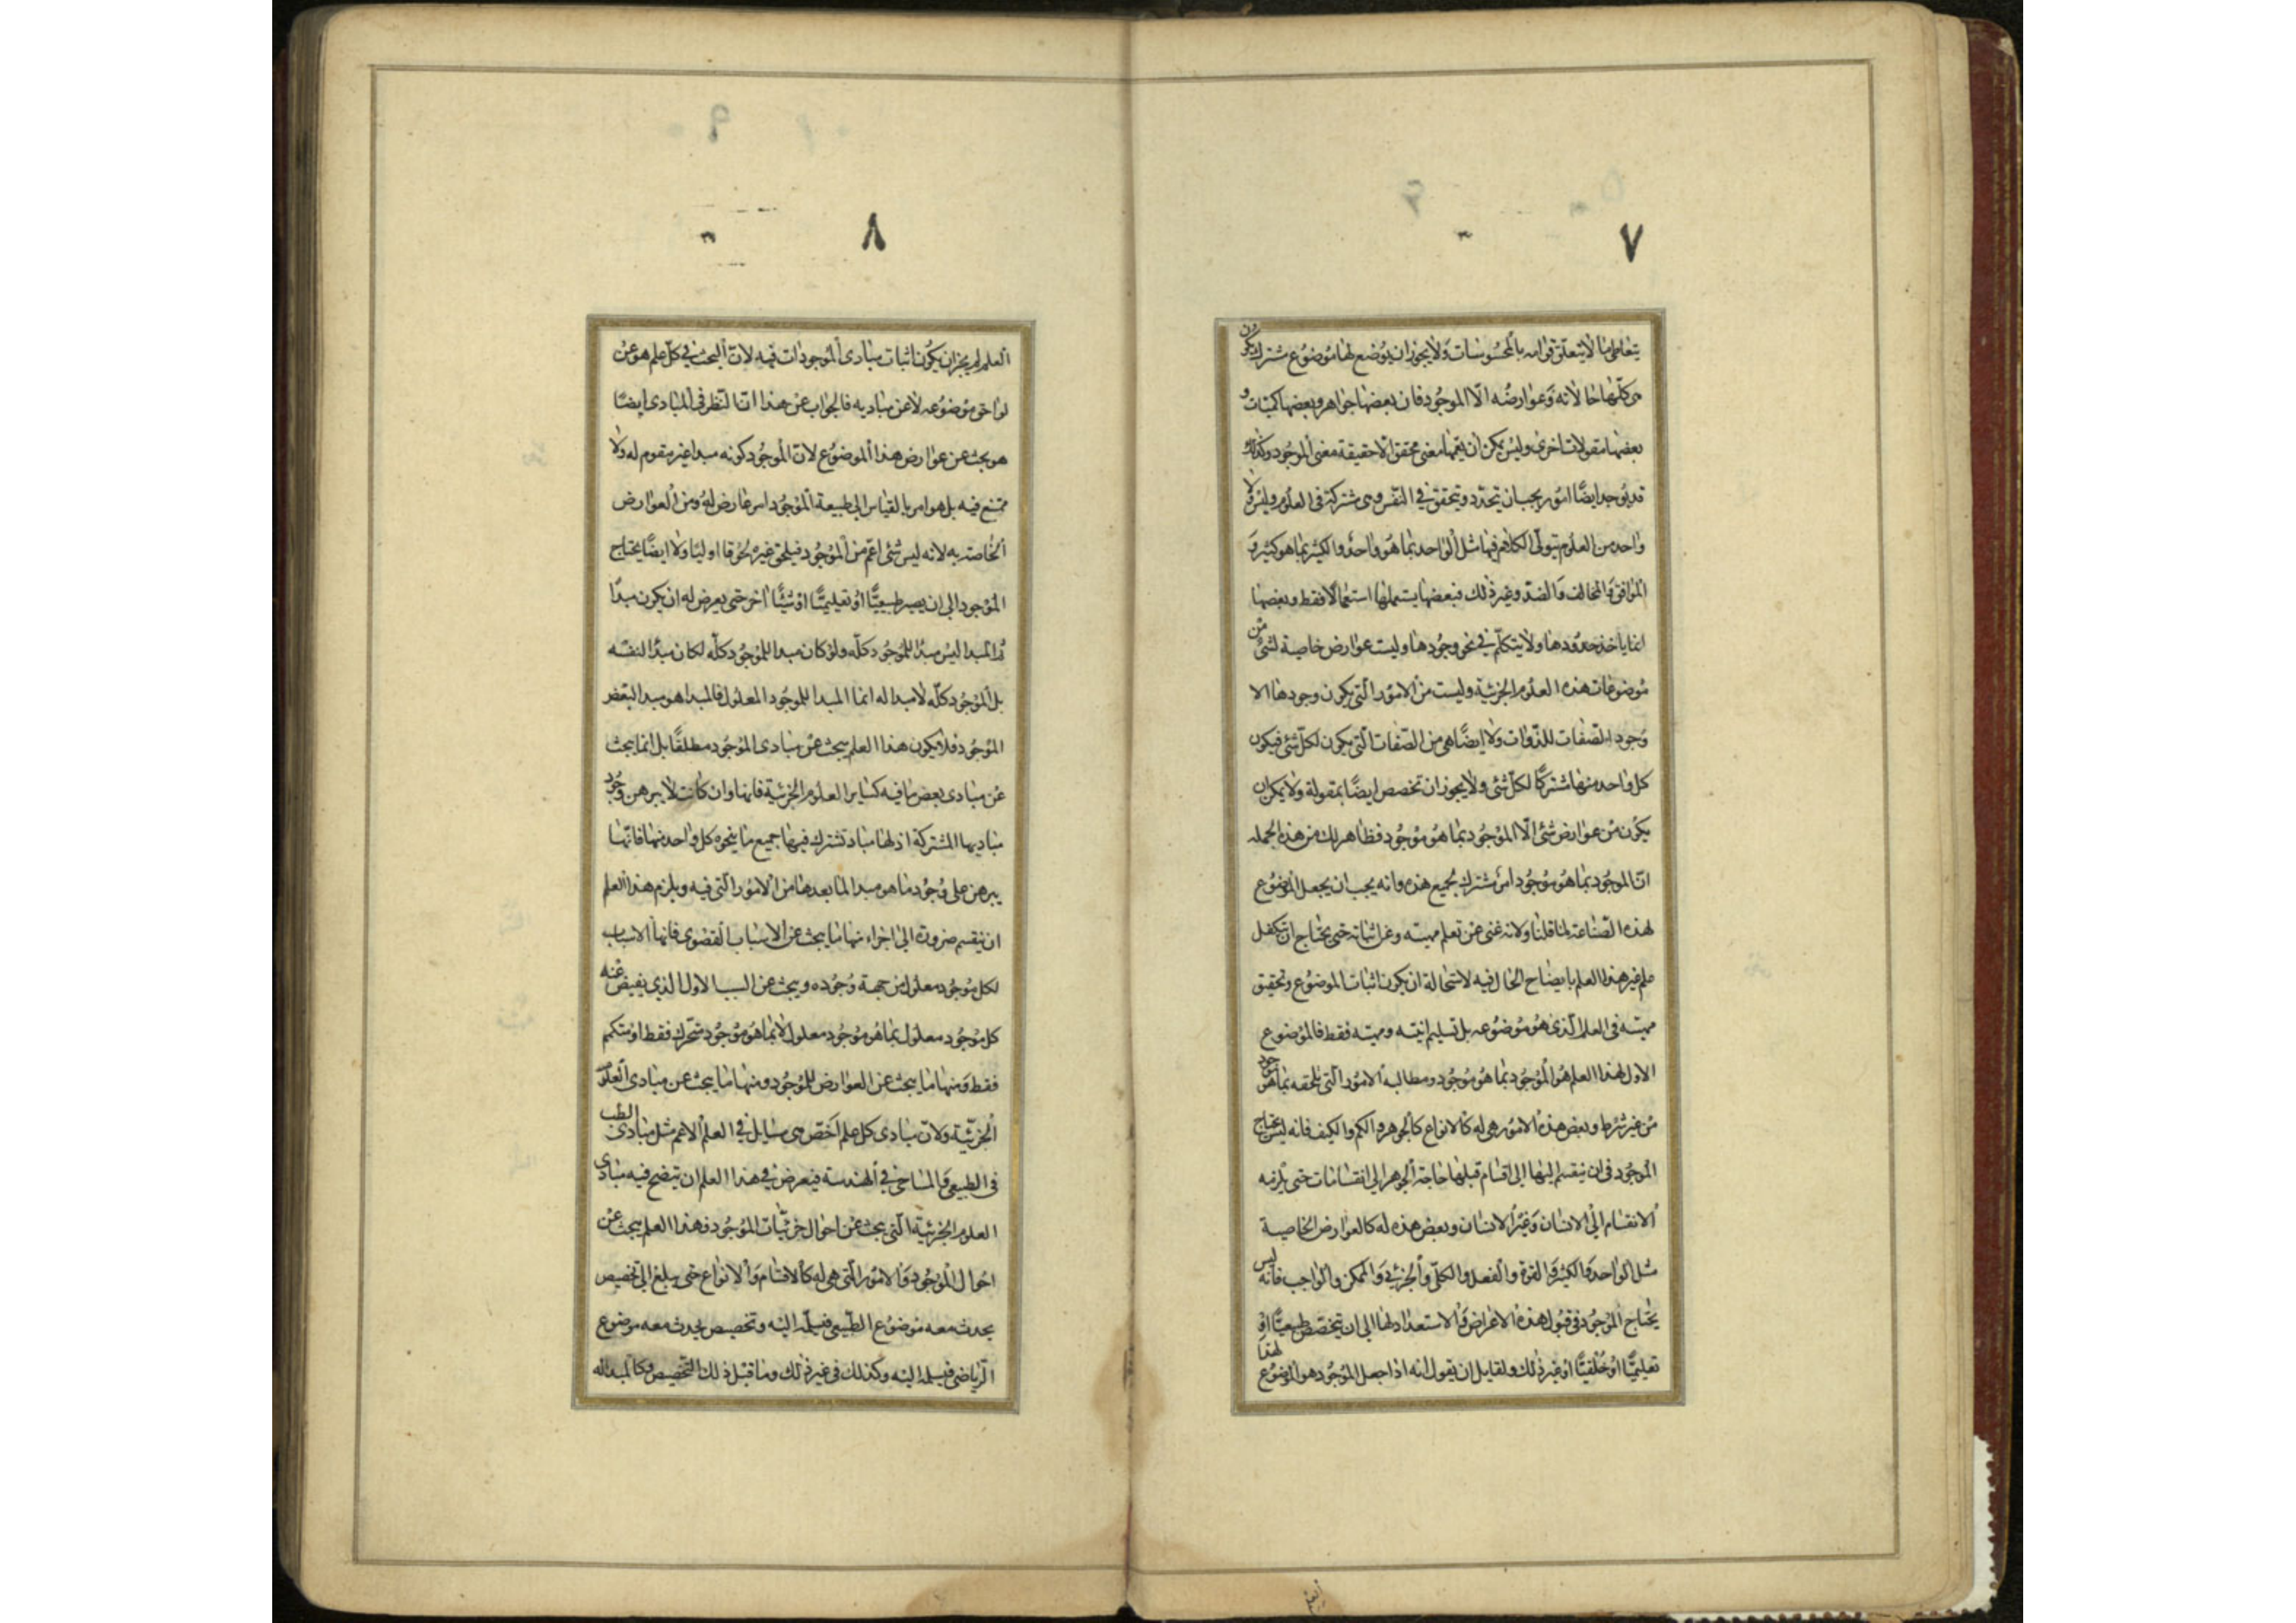 ٧
يتعاطى ما لا يتعلق قوامه بالمحسوسات ولا يجوز ان يوضع لها موضوع مشترك يكون
هى كلّها حالاته وعوارضه الّا الموجود فان بعضها جواهر وبعضها كميات و
بعضها مقولات اخرى وليس يمكن ان يعمّها معنى محقق الّا حقيقة معنى الموجود وكذلك
قد يوجد ايضًا امور يجب ان تتحدّد وتتحقق فى النّفس وهى مشتركة فى العلوم وليس ولا
واحد من العلوم يتولّى الكلام فيها مثل الواحد بما هو واحد والكثير بما هو كثير و
الموافق والمخالف والضدّ وغير ذلك فبعضها يستعملها استعمالًا فقط وبعضها
انما ياخذ حدودها ولا يتكلّم فى نحو وجودها وليست عوارض خاصية لشئ من
موضوعات هذه العلوم الجزئية وليست من الامور الّتى يكون وجودها الا
وجود الصّفات للذّوات ولا ايضًا هى من الصّفات الّتى يكون لكلّ شئ فيكون
كل واحد منها مشتركًا لكلّ شئ ولا يجوز ان تخصص ايضًا بمقولة ولا يمكن ان
يكون من عوارض شئ الّا الموجود بما هو موجود فظاهر لك من هذه الجمله
انّ الموجود بما هو موجود امر مشترك لجميع هذه وانه يجب ان يجعل الموضوع
لهذه الصّناعة لما قلنا ولانه غنى عن تعلم مهيته وعن اثباته حتى يحتاج ان تتكفل
علم غير هذا العلم بايضاح الحال فيه لاستحالة ان يكون اثبات الموضوع وتحقيق
مهيته فى العلم الّذى هو موضوعه بل تسليم انيته ومهيته فقط فالموضوع
الاول لهذا العلم هو الموجود بما هو موجود ومطالبه الامور الّتى تلحقه بما هو موجود
من غير شرط وبعض هذه الامور هى له كالانواع كالجوهر والكم والكيف فانه ليس يحتاج
الموجود فى ان ينقسم اليها الى اقسام قبلها حاجة الجوهر الى انقسامات حتى يلزمه
الانقسام الى الانسان وغير الانسان وبعض هذه له كالعوارض الخاصية
مثل الواحد والكثير والقوة والفعل والكلّى والجزئى والممكن والواجب فانه ليس
يحتاج الموجود فى قبول هذه الاعراض والاستعداد لها الى ان يتخصّص طبيعيًّا او
تعليميًّا او خُلقيًّا او غير ذلك ولقايل ان يقول انه اذا جعل الموجود هو الموضوع لهذا
٨
العلم لم يجز ان يكون اثبات مبادى الموجودات فيه لانّ البحث فى كلّ علم هو عن
لواحق موضوعه لا عن مباديه فالجواب عن هذا انّ النّظر فى المبادى ايضًا
هو بحث عن عوارض هذا الموضوع لانّ الموجود كونه مبدا غير مقوم له ولا
ممتنع فيه بل هو امر بالقياس الى طبيعة الموجود امر عارض له ومن العوارض
الخاصة به لانه ليس شئ اعمّ من الموجود فيلحق غيره لحوقا اوليًا ولا ايضًا يحتاج
الموجود الى ان يصير طبيعيًّا او تعليميًّا او شيئًا اخر حتى يعرض له ان يكون مبدًا
ثم المبدا ليس مبدًا للموجود كلّه ولو كان مبدا للموجود كلّه لكان مبدًا لنفسه
بل الموجود كلّه لا مبدا له انما المبدا للموجود المعلول فالمبدا هو مبدا لبعض
الموجود فلا يكون هذا العلم يبحث عن مبادى الموجود مطلقًا بل انما يبحث
عن مبادى بعض ما فيه كساير العلوم الجزئية فانها وان كانت لا يبرهن وجود
مباديها المشتركة اذ لها مباد تشترك فيها جميع ما ينحوه كل واحد منها فانّها
يبرهن على وجود ما هو مبدا لما بعدها من الامور الّتى فيه ويلزم هذا العلم
ان ينقسم ضرورة الى اجزاء منها ما يبحث عن الاسباب القصوى فانها الاسباب
لكل موجود معلول من جهة وجوده ويبحث عن السبب الاول الذى يفيض عنه
كل موجود معلول بما هو موجود معلول لا بما هو موجود متحرك فقط او متكمم
فقط ومنها ما يبحث عن العوارض للموجود ومنها ما يبحث عن مبادى العلوم
الجزئيّة ولانّ مبادى كل علم اخصّ هى مسايل فى العلم الاعم مثل مبادى الطب
فى الطبيعى والمساحى فى الهندسة فيعرض فى هذا العلم ان يتضح فيه مبادى
العلوم الجزئية الّتى يبحث عن احوال جزئيّات الموجود فهذا العلم يبحث عن
احوال الموجود والامور الّتى هى له كالاقسام والانواع حتى يبلغ الى تخصيص
يحدث معه موضوع الطّبيعى فيسلمه اليه وتخصيص يحدث معه موضوع
الرّياضى فيسلمه اليه وكذلك فى غير ذلك وما قبل ذلك التّخصيص وكالمبدا له